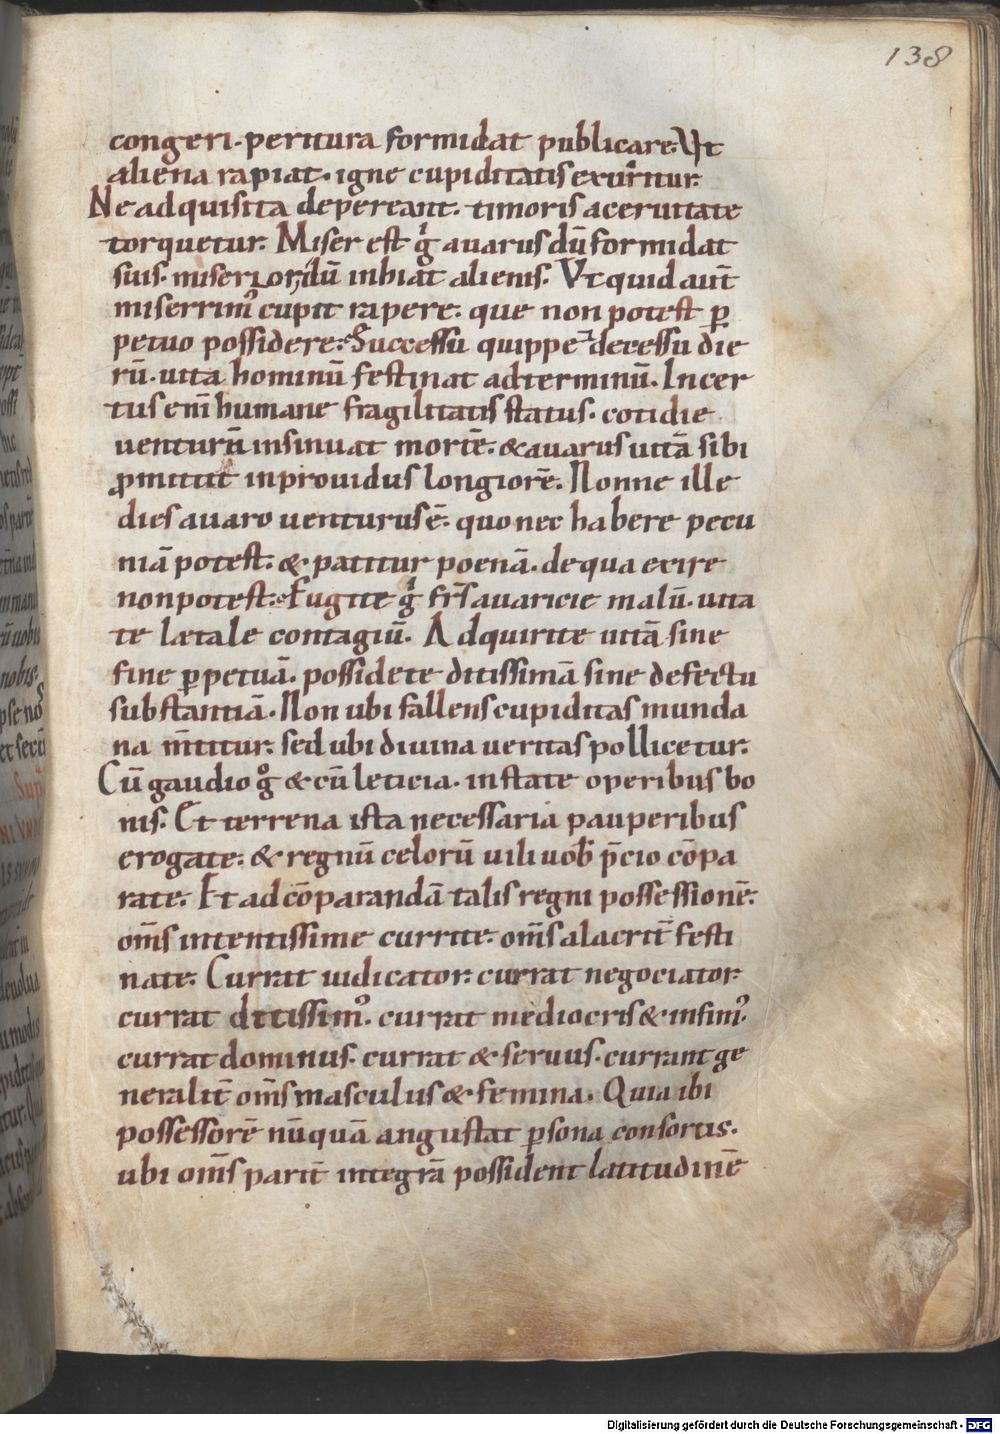 138
congeri. peritura formidat publicare. Ut
aliena rapiat. igne cupiditatis exuritur.
Ne adquisita depereant. timoris aceruitate
torquetur. Miser est gͥ auarus dū formidat
suis. miserior dū inhiat alienis. Ut quid aut̄
miserrimꝰ cupit rapere. que non potest ꝑ
petuo possidere. Successu quippe & decessu die
rū. uita hominū festinat ad terminū. Incer
tus eni̅ humane fragilitatis status. cotidie
venturū insinuat mortē. & auarus uitā sibi
ꝓmittit inprouidus longiorē. Nonne ille
dies auaro uenturus ē. quo nec habere pecu
niā potest. & patitur poenā. de qua exire
non potest. Fugite gͥ fr̅s auaricie malū. uita
te lætale contagiū. Adquirite uitā sine
fine ꝑpetuā. possidete ditissimā sine defectu
substantiā. Non ubi fallens cupiditas munda
na m̅titur. sed ubi diuina ueritas pollicetur.
Cū gaudio gͦ & cū leticia. instate operibus bo
nis. Et terrena ista necessaria pauperibus
erogate. & regnū celorū uili uob̅ p̅cio cōpa
rate. Et ad cōparandā talis regni possessionē.
om̅s intentissime currite. om̅s alacrit̅ festi
nate. Currat iudicator. currat negociator.
currat ditissimꝰ. currat mediocris & infimꝰ.
currat dominus. currat & seruus. currant ge
neralit̅ om̅s masculus & femina. Quia ibi
possessorē nūquā angustat ꝑsona consortis.
ubi om̅s parit̅ integrā possident latitudinē
Digitalisierung gefördert durch die Deutsche Forschungsgemeinschaft - DFG